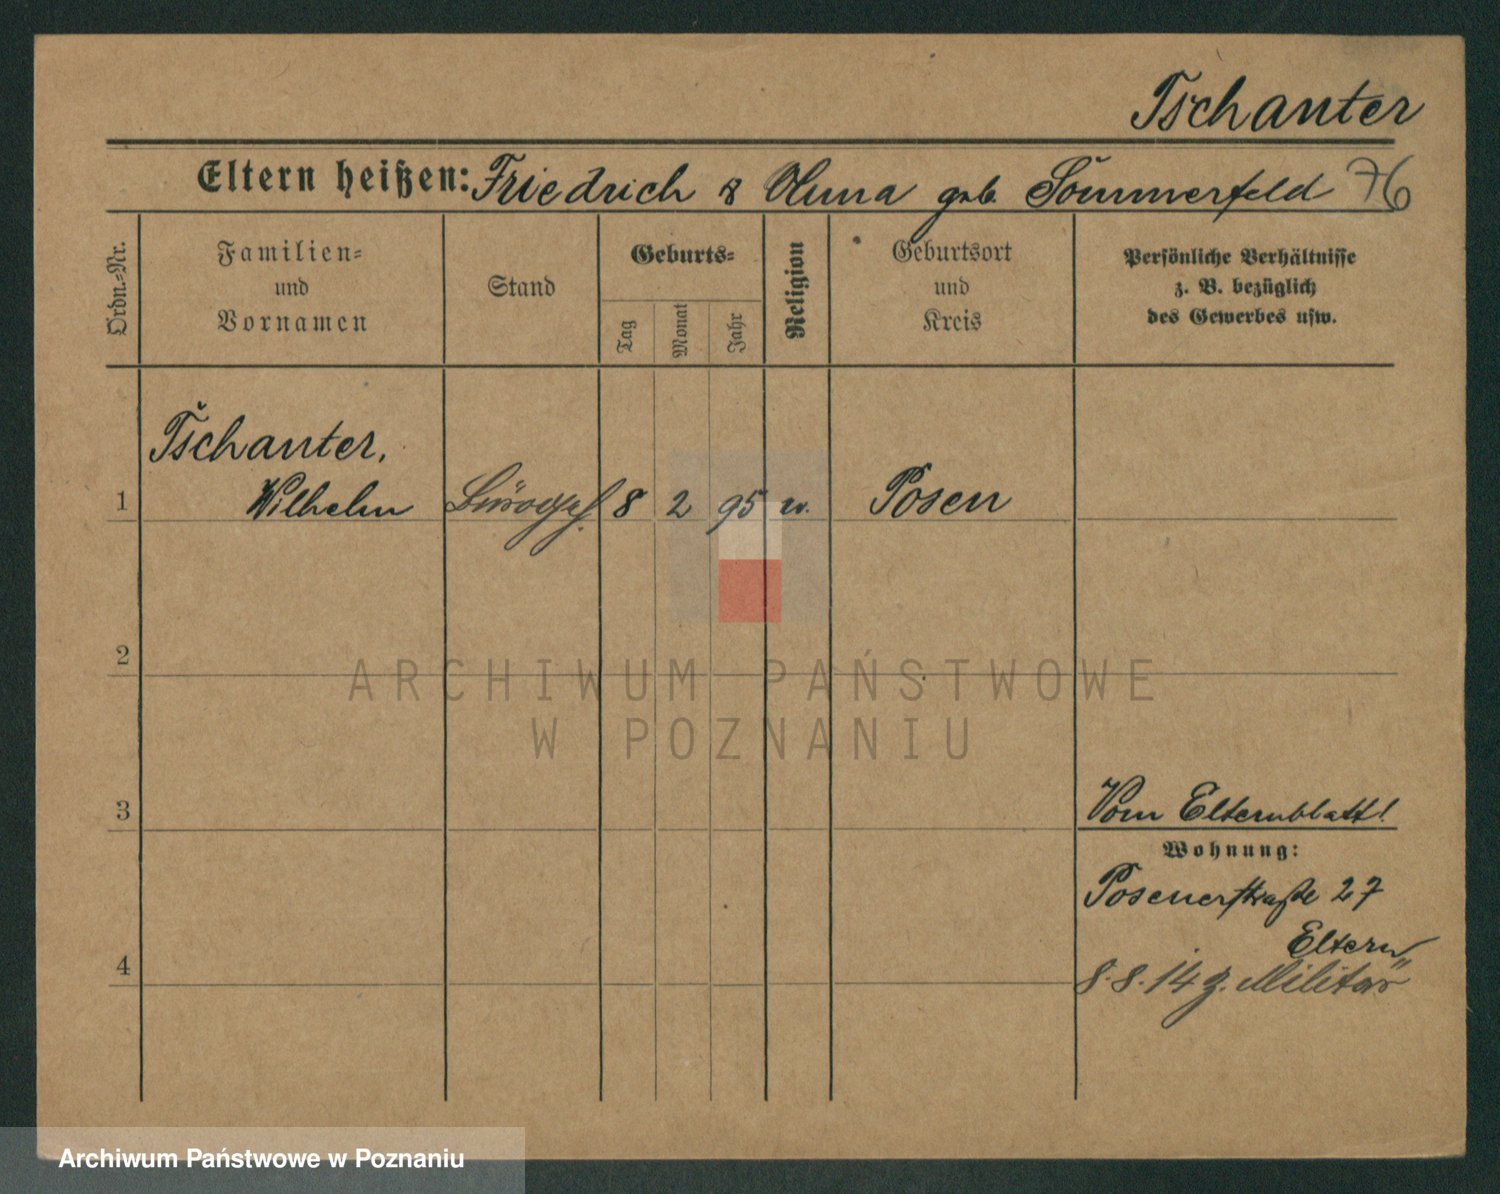 Tschanter
Eltern heißen: Friedrich & Anna geb. Sommerfeld 76
Ordn.-Nr.
Familien-
und
Vornamen
Stand
Geburts-
Tag
Monat
Jahr
Religion
Geburtsort
und
Kreis
Persönliche Verhältnisse
z. B. bezüglich
des Gewerbes usw.
Tschanter,
1 Wilhelm Bürogeh. 8 2 95 ev. Posen
2
ARCHIWUM PAŃSTWOWE
W POZNANIU
3 Vom Elternblatt!
Wohnung:
Posenerstraße 27
Eltern
4 8.8.14 z. Militär
Archiwum Państwowe w Poznaniu